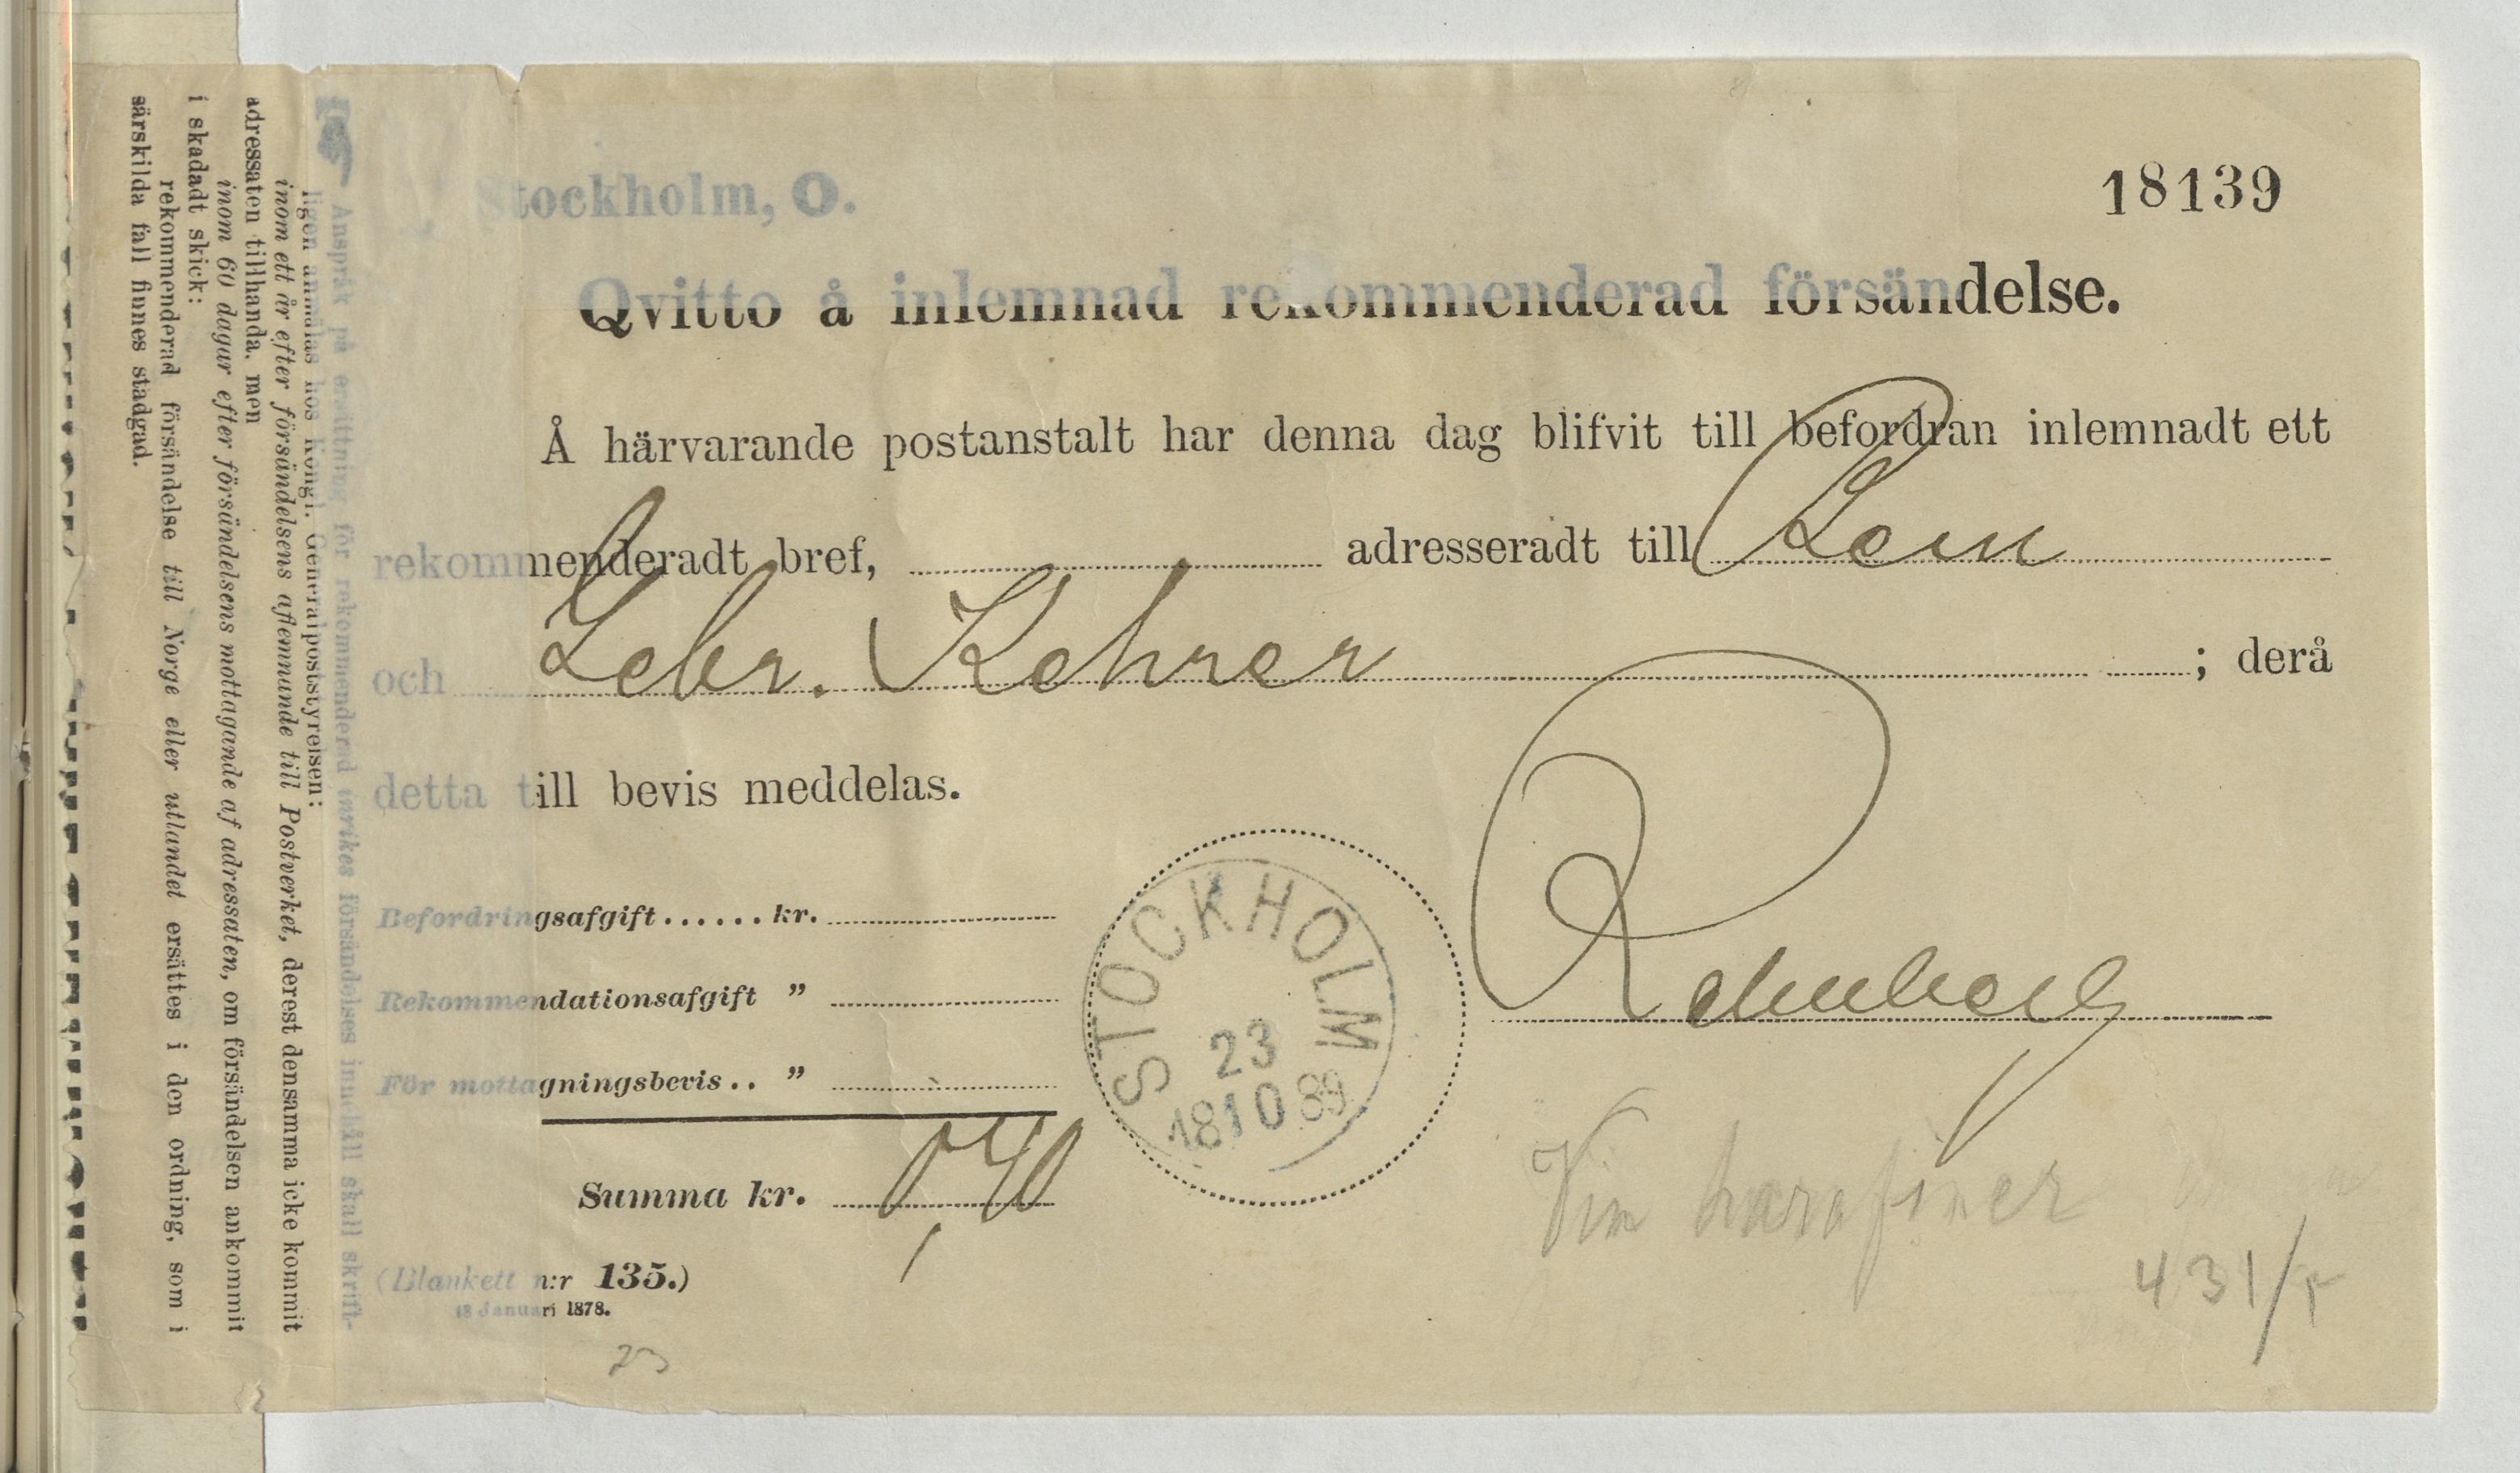 Stockholm, O.
18139
Qvitto å inlemnad rekommenderad försändelse.
Å härvarande postanstalt har denna dag blifvit till befordran inlemnadt ett
rekommenderadt bref, adresseradt till
och Gebr. Rehrer ; derå
detta till bevis meddelas.
Befordringsafgift...... kr.
Rekommendationsafgift ”
För mottagningsbevis.. ”
Summa kr. 0,40
STOCKHOLM
23
18 10 89
(Blankett n:r 135.)
18 Januari 1878.
23
431/
Anspråk på ersättning för rekommenderad inrikes försändelses innehåll skall skrift-
ligen anmälas hos Kongl. Generalpoststyrelsen:
inom ett år efter försändelsens aflemnande till Postverket, derest densamma icke kommit
adressaten tillhanda, men
inom 60 dagar efter försändelsens mottagande af adressaten, om försändelsen ankommit
i skadadt skick:
rekommenderad försändelse till Norge eller utlandet ersättes i den ordning, som i
särskilda fall finnes stadgad.